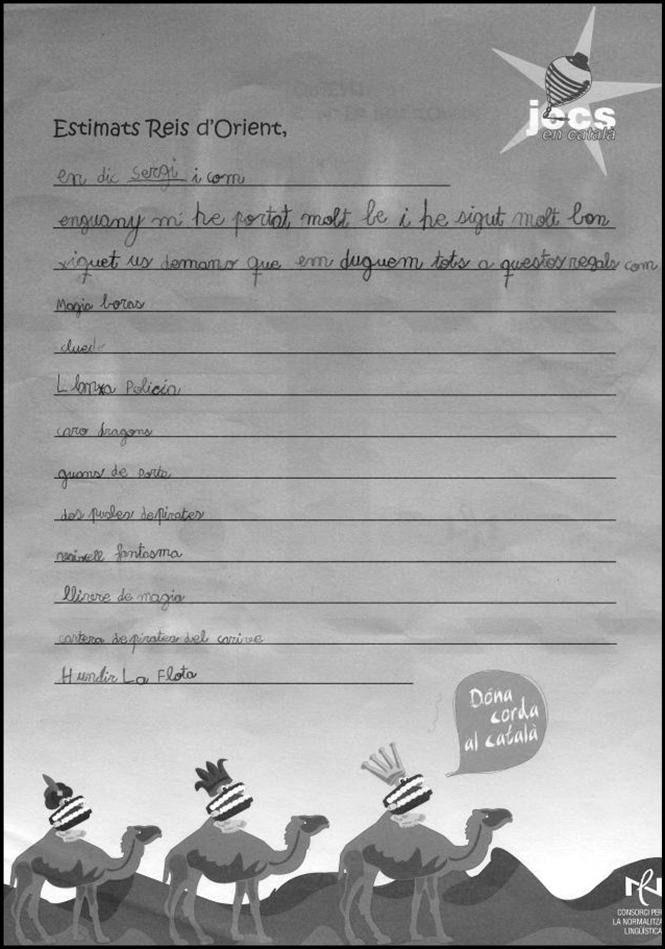 jocs
en català
Estimats Reis d'Orient,
en dic sergi i com
enguany mí he portat molt be i he sigut molt bon
xiquet us demano que em duguem tots a questos regals com
Magia boras
cluedo
Policía
caro dragons
guans de porta
dos puzles de pirates
vaixell fantasma
llivre de magia
cartera de pirates del carive
Hundir La Flota
Dóna
corda
al català
CONSORCI PER
LA NORMALITZA
LINGÜÍSTICA